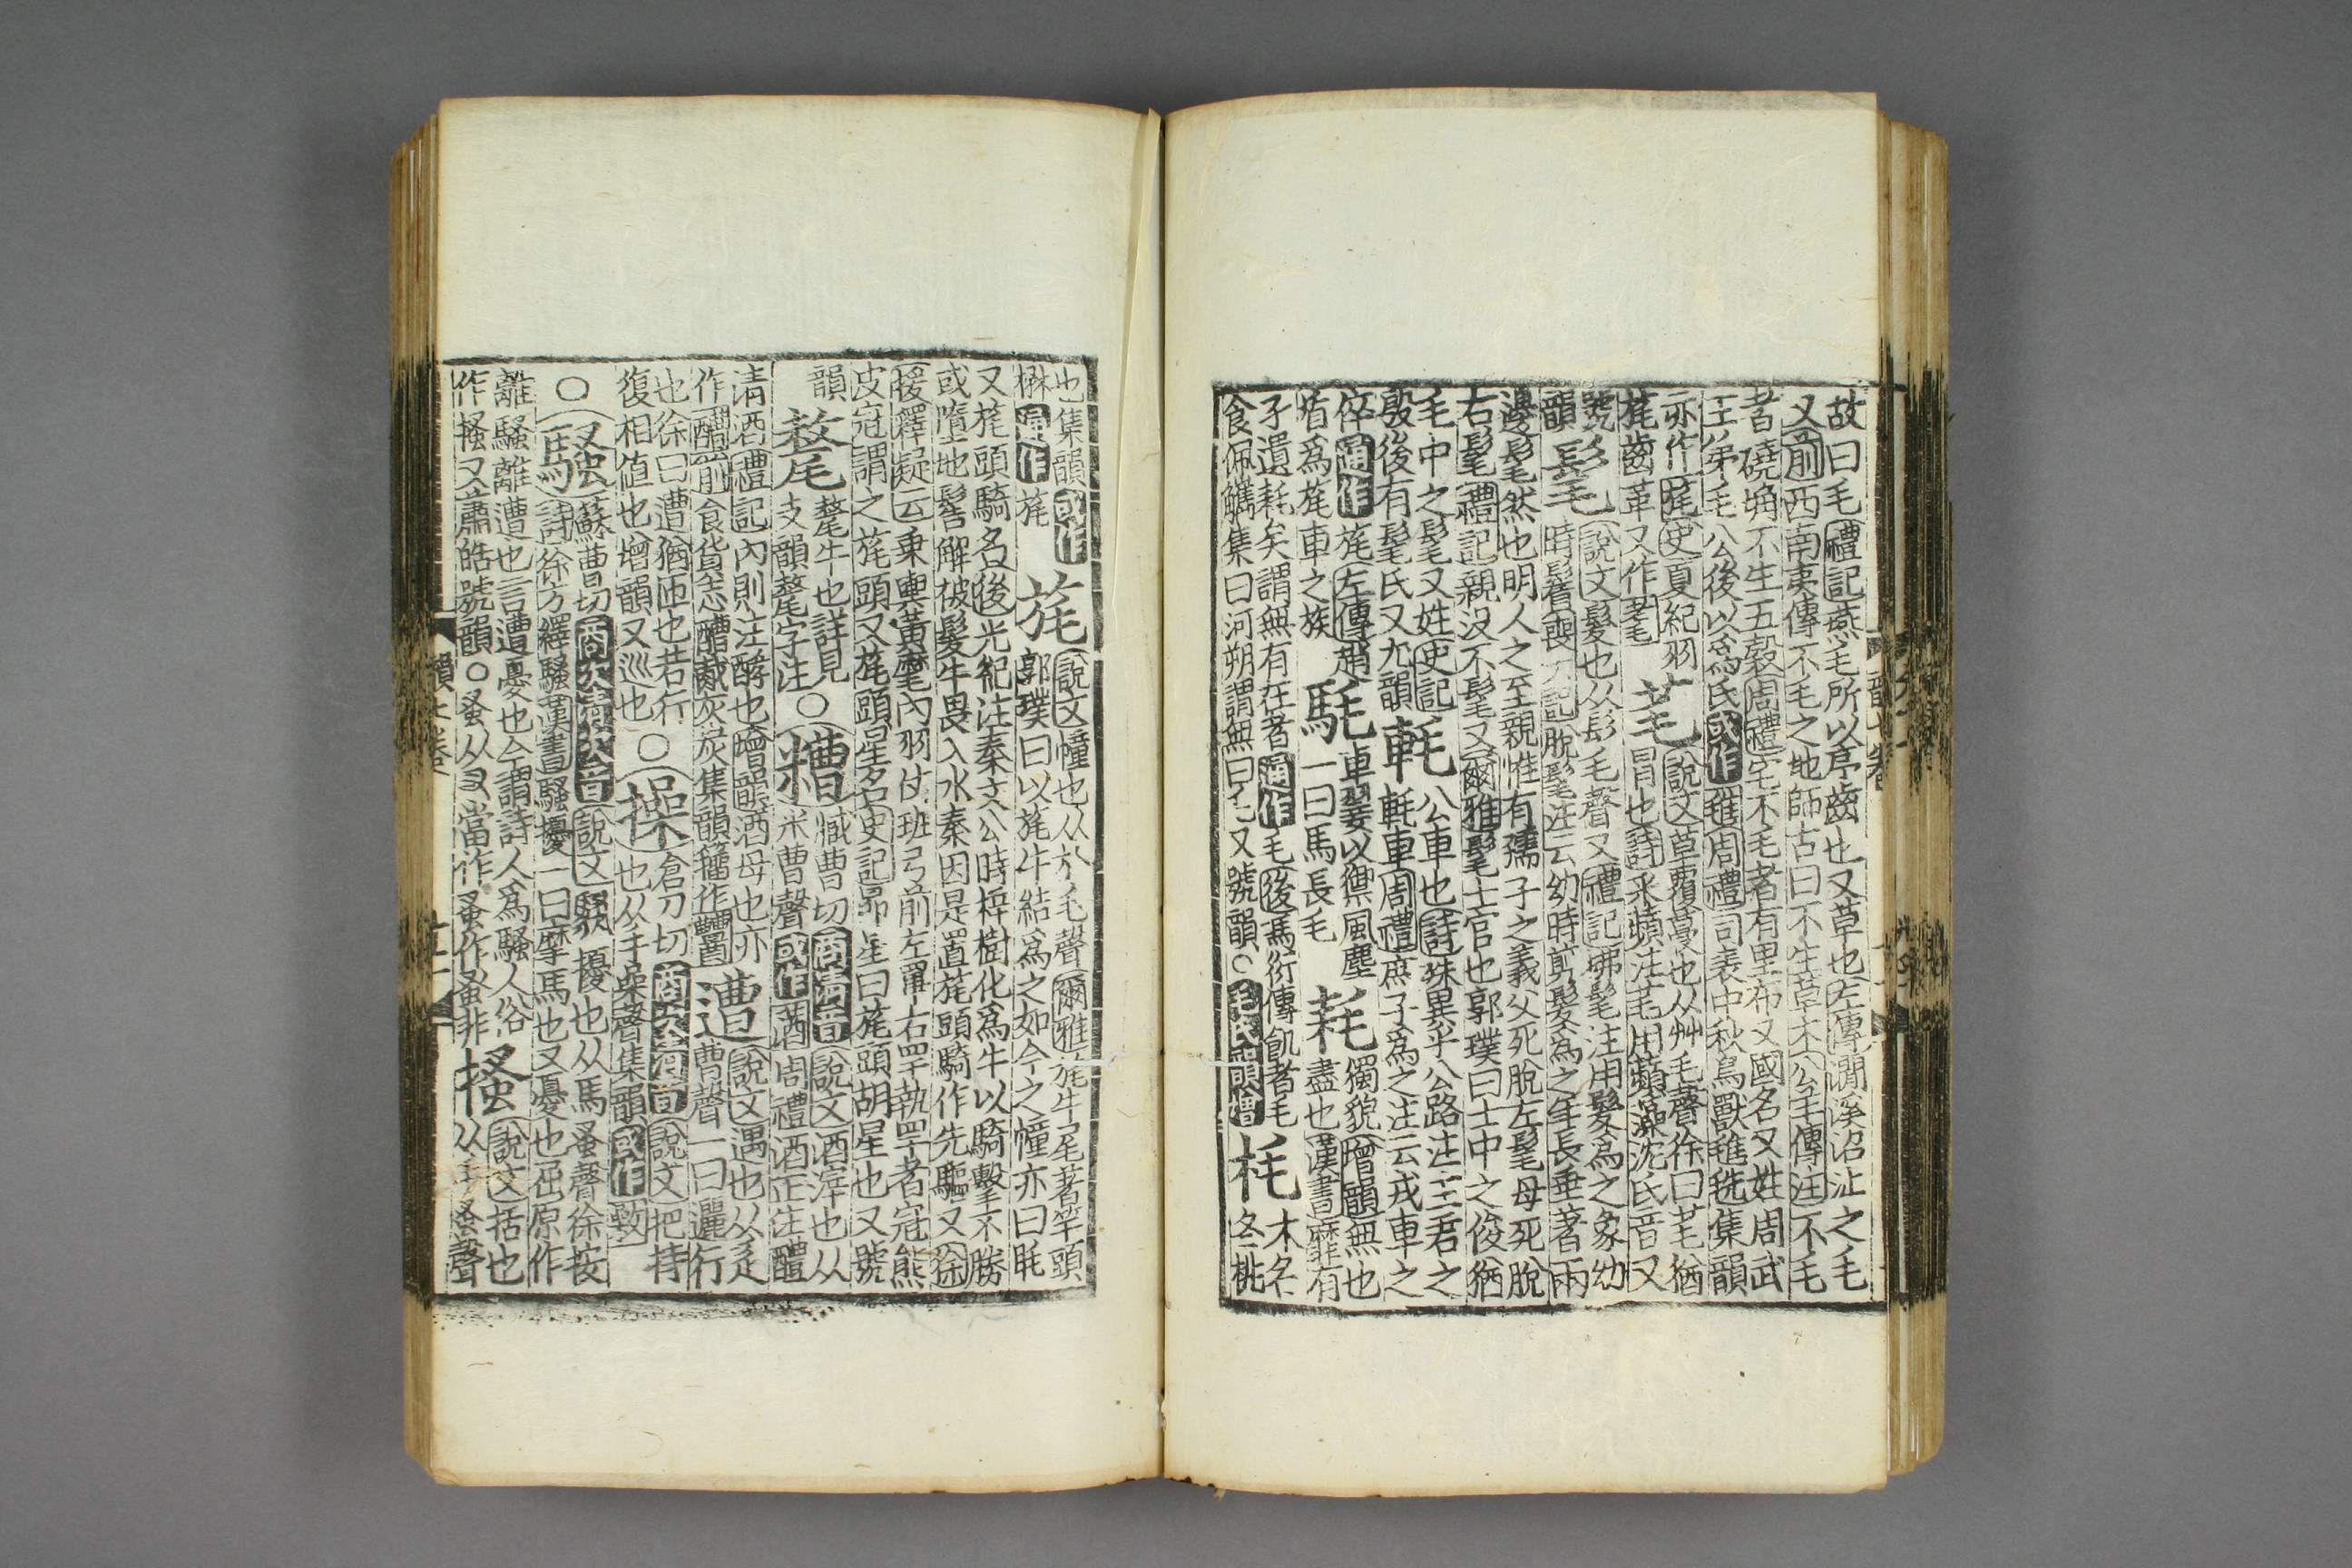 故曰毛禮記燕毛所以序齒也又草也左傳澗溪沼沚之毛
又前西南夷傳不毛之地師古曰不生草木公羊傳注不毛
者磽埆不生五穀周禮宅不毛者有里布又國名又姓周武
王弟毛公後以爲氏或作毴周禮司裘中秋鳥獸毴毨集韻
亦作毣史夏紀羽
旄齒革又作髦
芼
冒也詩采蘋注芼用蘋藻沈氏音又
說文草覆蔓也从艸毛聲徐曰芼猶
號
韻
髦
說文髮也从髟毛聲又禮記拂髦注用髮爲之象幼
時鬌喪記脫髦注云幼時剪髮爲之年長垂著兩
邊髦然也明人之至親惟有孺子之義父死脫左髦母死脫
右髦禮記親沒不髦又爾雅髦士官也郭璞曰士中之俊猶
毛中之髦又姓史記
殷後有髦氏又尤韻
軞
公車也詩殊異乎公路注主君之
軞車周禮庶子爲之注云戎車之
倅通作旄左傳趙
盾爲旄車之族
駹
車翣以禦風塵
一曰馬長毛
耗
獨貌增韻無也
盡也漢書靡有
孑遺耗矣謂無有在者通作毛後馮衍傳飢者毛
食佩觿集曰河朔謂無曰毛又號韻○毛氏韻增
枆
木名
冬桃
也集韻或作
楙通作旄
旄
說文幢也从㫃毛聲爾雅旄牛尾著竿頭
郭璞曰以旄牛結爲之如今之幢亦曰毦
又旄頭騎名後光紀注秦文公時梓樹化爲牛以騎擊不勝
或墮地髻解被髮牛畏入水秦因是置旄頭騎作先驅又徐
援釋疑云乘輿黃麾內羽仗班弓前左罼右罕執罕者冠熊
皮冠謂之旄頭又旄頭星名史記昴星曰旄頭胡星也又號
韻
氂
犛牛也詳見
支韻氂字注
○
糟
臧曹切商清音說文酒滓也从
米曹聲或作𦵩周禮酒正注醴
清酒禮記內則注酵也增韻酒母也亦
作醩前食貨志醩酨灰炭集韻籒作𨣍
遭
說文遇也从辵
曹聲一曰邐行
也徐曰遭猶匝也若行
復相値也增韻又巡也
○
操
倉刀切商次清音說文把持
也从手喿聲集韻或作𢿾
○
騷
蘇曹切商次淸次音說文騷擾也从馬蚤聲徐按
詩徐方繹騷漢書騷擾一曰摩馬也又憂也屈原作
離騷離遭也言遭憂也今謂詩人爲騷人俗
作搔又蕭皓號韻○蚤从叉當作蚤作蚤非
搔
說文括也
从手蚤聲